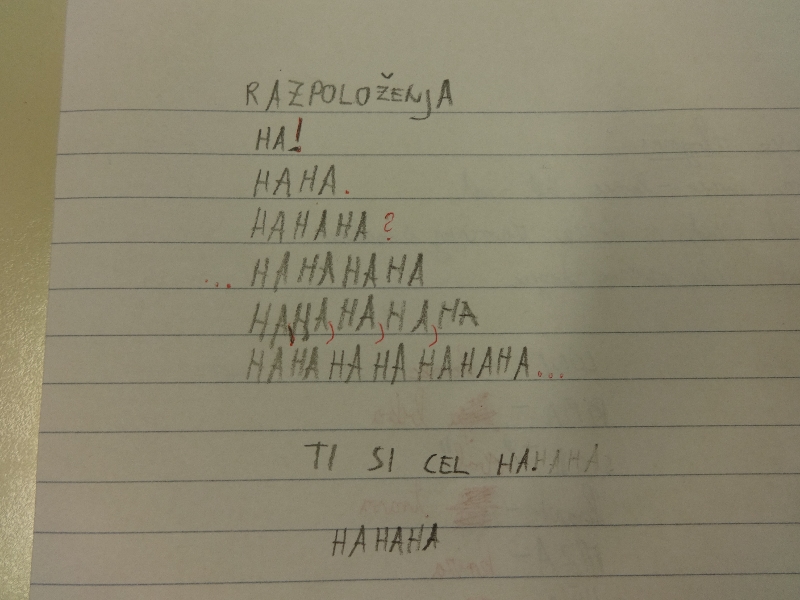 RAZPOLOŽENJA
HA!
HAHA.
HAHAHA?
...HAHAHAHA
HA,HA,HA,HA,HA
HAHAHAHAHAHAHA...
TI SI CEL HA!HAHA.
HAHAHA